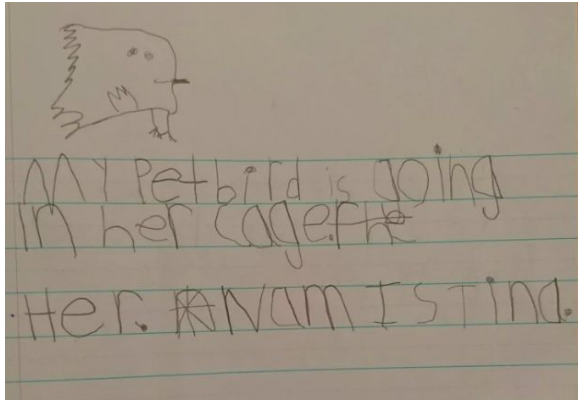 My Pet bird is going
In her cage.
Her. Nam Is Tina.